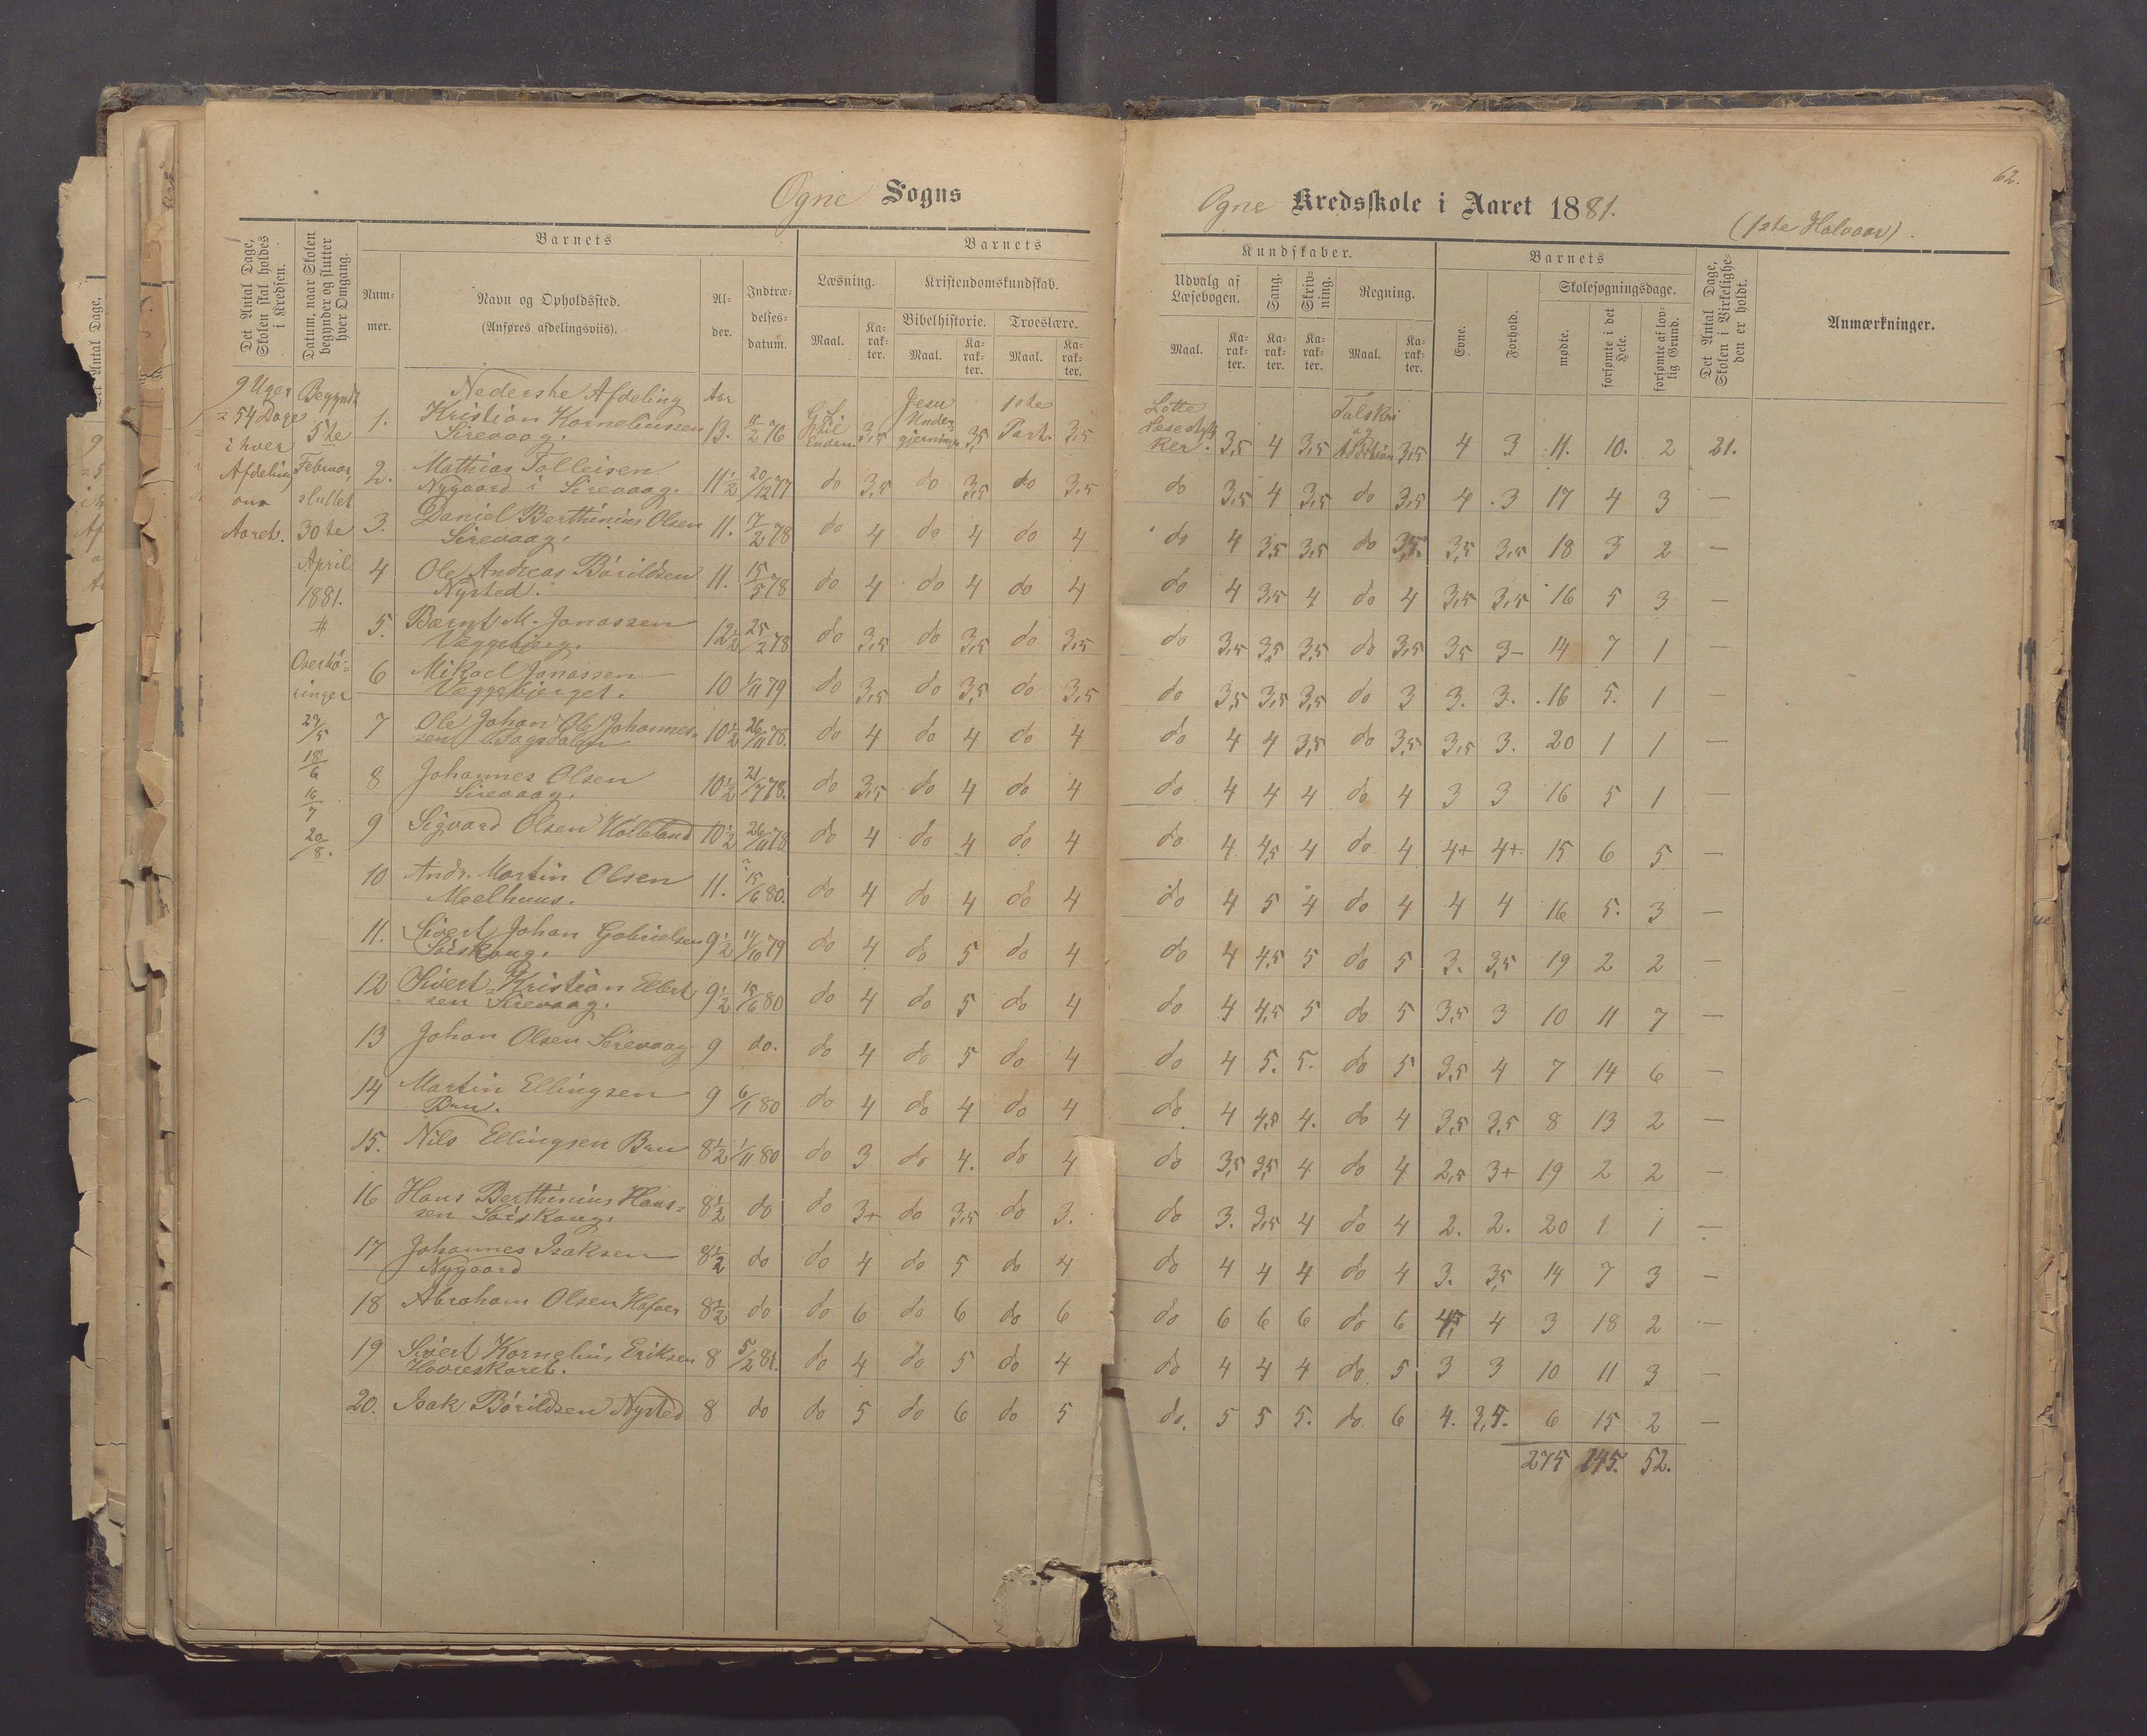 62.
Ogne Sogns
Ogne Kredsskole i Aaret 1881.
(1ste Halvaar).
Det Antal Dage, Skolen skal holdes i Kredsen.
Datum, naar Skolen begynder og slutter hver Omgang.
Barnets
Num-mer.
Navn og Opholdssted.
(Anføres afdelingsviis).
Al-der.
Indtræ-delses-datum.
Barnets
Læsning.
Maal.
Ka-rak-ter.
Kristendomskundskab.
Bibelhistorie.
Maal.
Ka-rak-ter.
Troeslære.
Maal.
Ka-rak-ter.
Kundskaber.
Udvalg af Læsebogen.
Maal.
Ka-rak-ter.
Sang.
Ka-rak-ter.
Skriv-ning.
Ka-rak-ter.
Regning.
Maal.
Ka-rak-ter.
Barnets
Evne.
Forhold.
Skolesøgningsdage.
mødte.
forsømte i det Hele.
forsømte af lov-lig Grund.
Det Antal Dage, Skolen i Virkelighe-den er holdt.
Anmærkninger.
9 Uger
= 54 Dage
i hver
Afdeling
om
Aaret.
Begyndt
5te
Februar,
sluttet
30te
April
1881.
#
Overhø-
ringer
18/6
16/7
20/8.
Nederste Afdeling Aar
1. Kristian Korneliussen Sirevaag. 13. 76 3,5 Jesu Under-gjerninger 3,5 1ste Part. 3,5 Lette Læsestyk-ker. 3,5 4 3,5 Talskri og Addition 3,5 4 3 11. 10. 2 21.
2. Mathias Tolleisen Nygaard i Sirevaag. 11½ 20/12 77 do 3,5 do 3,5 do 3,5 do 3,5 4 3,5 do 3,5 4 3 17 4 3 —
3. Daniel Berthinius Olsen Sirevaag. 11. 17/2 78 do 4 do 4 do 4 do 4 3,5 3,5 do 3,5 3,5 3,5 18 3 2 —
4 Ole Andreas Børildsen Nysted. 11. 15/5 78 do 4 do 4 do 4 do 4 3,5 4 do 4 3,5 3,5 16 5 3 —
5. Bærnt M. Jonassen Væggebjerg. 12½ 25/2 78 do 3,5 do 3,5 do 3,5 do 3,5 3,5 3,5 do 3,5 3,5 3- 14 7 1 —
6 Mikael Jonassen Væggebjerget. 10 1/11 79 do 3,5 do 3,5 do 3,5 do 3,5 3,5 3,5 do 3 3. 3. 16 5. 1 —
7 Ole Johan Ole Johannes-sen 10½ 26/11 78. do 4 do 4 do 4 do 4 4 3,5 do 3,5 3,5 3. 20 1 1 —
8 Johannes Olsen Sirevaag. 10½ 21/7 78. do 3,5 do 4 do 4 do 4 4 4 do 4 3 3 16 5 1 —
9 Sigvard Olsen Hølleland 10½ 26/11 78 do 4 do 4 do 4 do 4 4,5 4 do 4 4+ 4+ 15 6 5 —
10 Andr. Martin Olsen Meelhuus. 11. 15/6 80. do 4 do 4 do 4 do 4 5 4 do 4 4 4 16 5. 3 —
11. Sivert Johan Gabrielsen 9½ 14/10 79 do 4 do 5 do 4 do 4 4,5 5 do 5 3. 3,5 19 2 2 —
12 Sivert Kristian Elert-sen Sirevaag. 9½ 15/6 80 do 4 do 5 do 4 do 4 4,5 5 do 5 3,5 3 10 11 7 —
13 Johan Olsen Sirevaag 9 do. do 4 do 5 do 4 do 4 5. 5. do 5 3,5 4 7 14 6 —
14 Martin Ellingsen Bru. 9 6/1 80 do 4 do 4 do 4 do 4 4,5 4. do 4 3,5 3,5 8 13 2 —
15. Nils Ellingsen Bru 8½ 1/11 80 do 3 do 4. do 4 do 3,5 3,5 4 do 4 2,5 3+ 19 2 2 —
16 Hans Berthinius Hans-sen 8½ do do 3+ do 3,5 do 3. do 3. 3,5 4 do 4 2. 2. 20 1 1 —
17 Johannes Isaksen Nygaard 8½ do do 4 do 5 do 4 do 4 4 4 do 4 3. 3,5 14 7 3 —
18 Abraham Olsen 8½ do do 6 do 6 do 6 do 6 6 6 do 6 4,5 4 3 18 2 —
19 Sivert Kornelius Eriksen Havreskaret. 8 5/2 81. do 4 do 5 do 4 do 4 4 4 do 5 3 3 10 11 3 —
20. Isak Børildsen Nysted 8 do do 5 do 6 do 5 do. 5 5 5. do 6 4. 3,5. 6 15 2 —
275 145. 52.